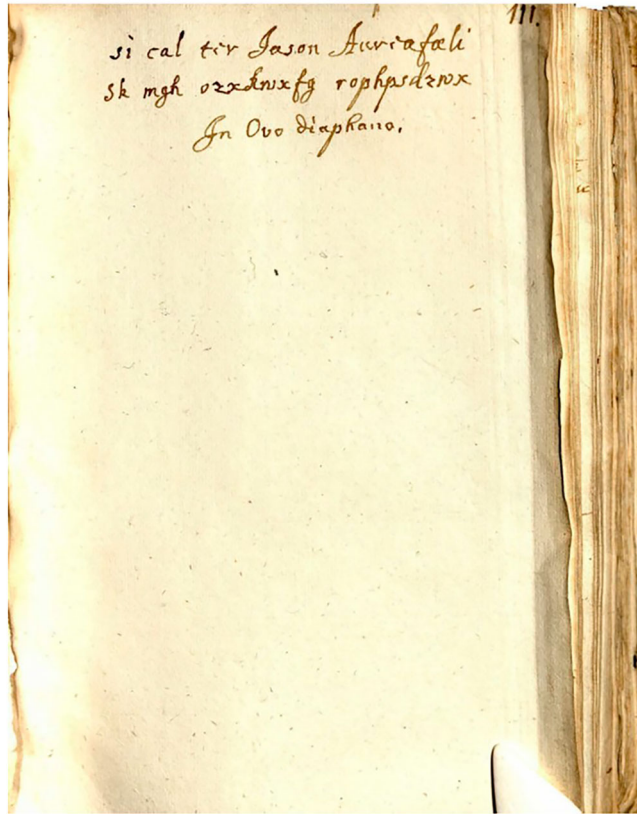 111.
si cal ter Jason Aureafœli
sk mgh ozxknxfg rophpsdzwx
In Ovo diaphano.